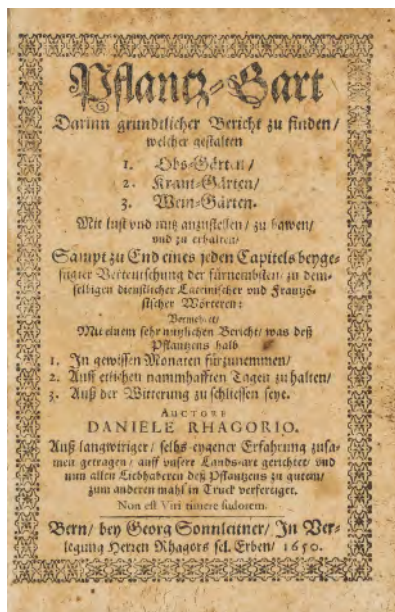 Pflantz-Gart
Darinn grundtlicher Bericht zu finden/
welcher gestalten
1. Obs-Gärten/
2. Kraut-Gärten/
3. Wein-Gärten.
Mit lust vnd nutz anzustellen/ zu bawen/
vnd zu erhalten/
Sampt zu End eines jeden Capitels beyge-
fügter Verteutschung der fürnembsten/ zu dem-
selbigen dienstlicher Lateinischer vnd Frantzö-
sischer Wörteren:
Vermehret/
Mit einem sehr nutzlichen Bericht/ was deß
Pflantzens halb
1. In gewissen Monaten fürzunemmen/
2. Auff etlichen nammhafften Tagen zu halten/
3. Auß der Witterung zu schliessen seye.
AUCTORE
DANIELE RHAGORIO.
Auß langwiriger/ selbs-eygener Erfahrung zusa-
men getragen/ auff vnsere Lands-art gerichtet/ vnd
nun allen Liebhaberen deß Pflantzens zu gutem/
zum anderen mahl in Truck verfertiget.
Non est Viri timere sudorem.
Bern/ bey Georg Sonnleitner/ In Ver-
legung Herren Rhagors sel. Erben/ 1650.